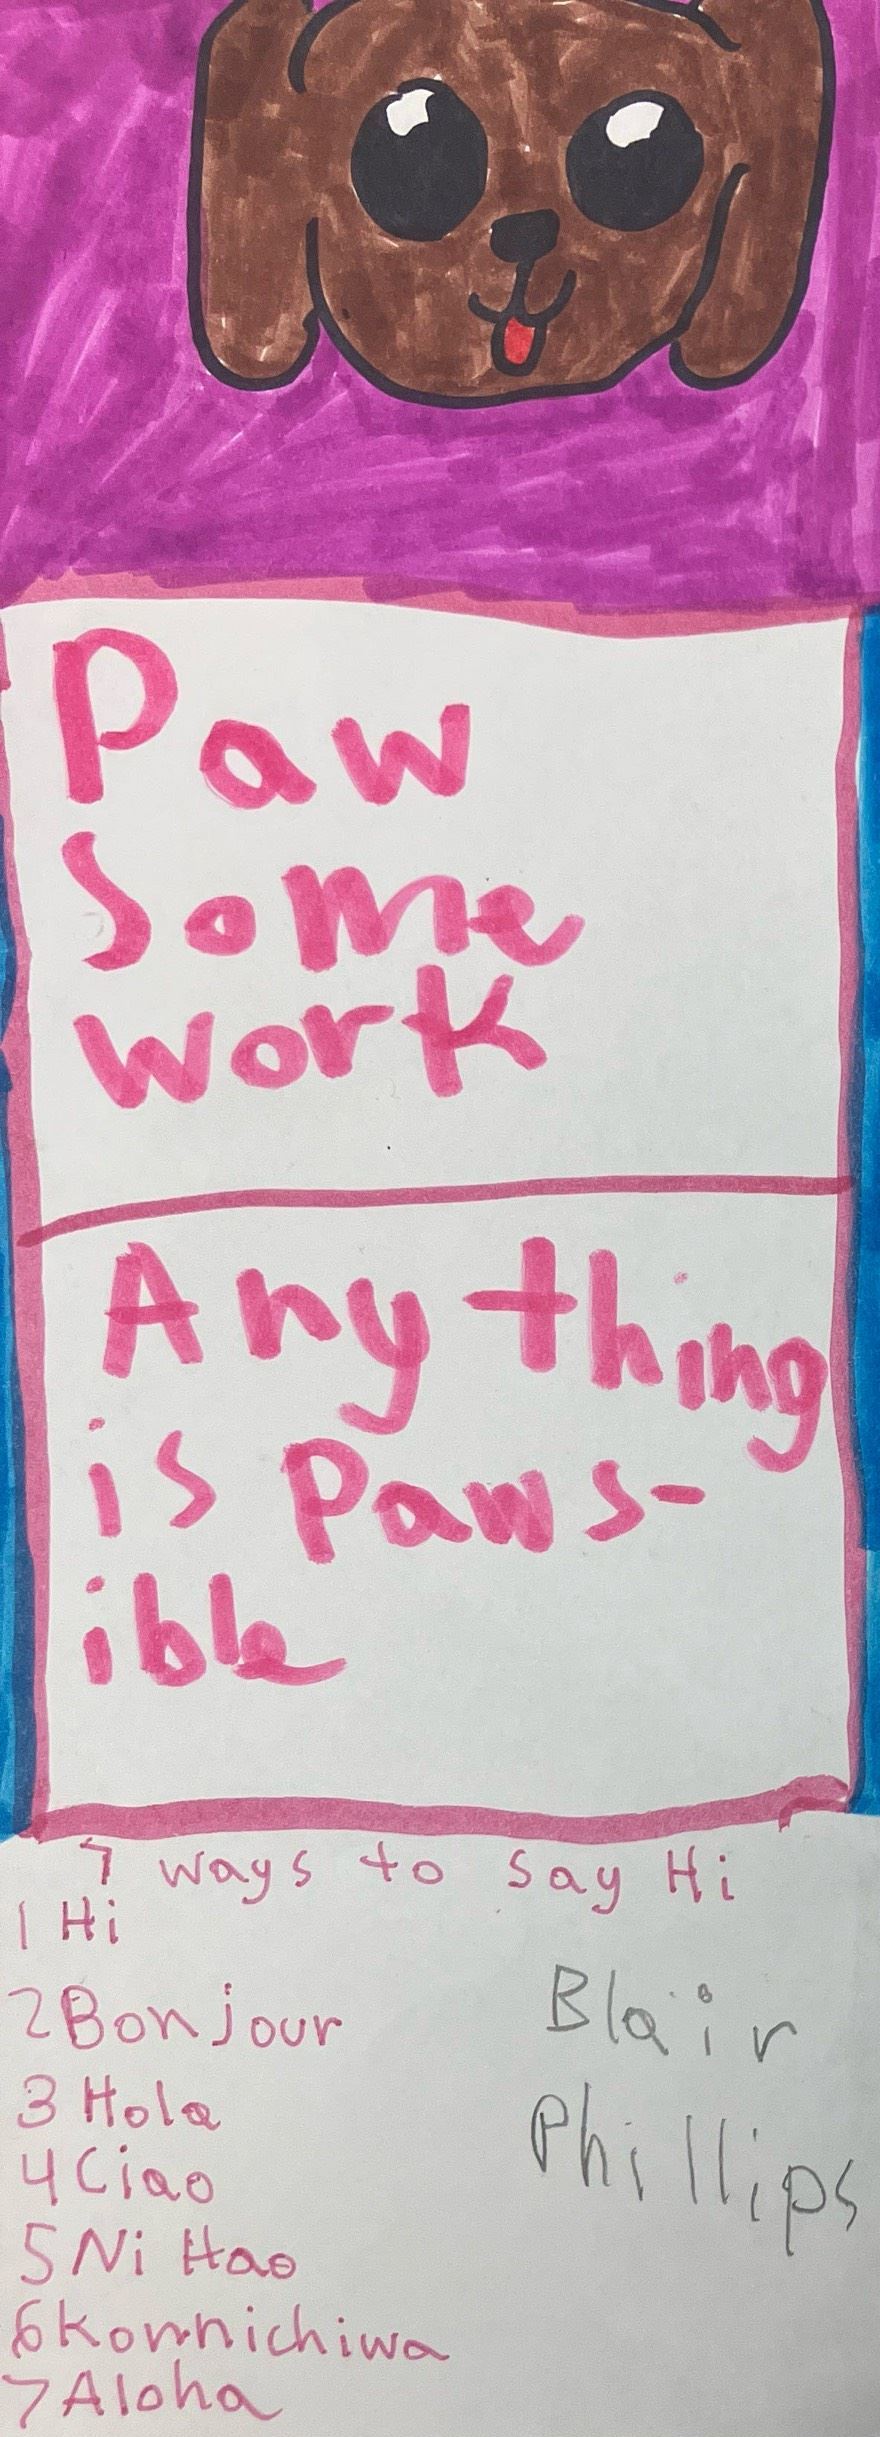 Paw
Some
work
Anything
is Paws-
ible
7 ways to say Hi
1 Hi
2 Bonjour
3 Hola
4 Ciao
5 Ni Hao
6 Konnichiwa
7 Aloha
Blair
Phillips